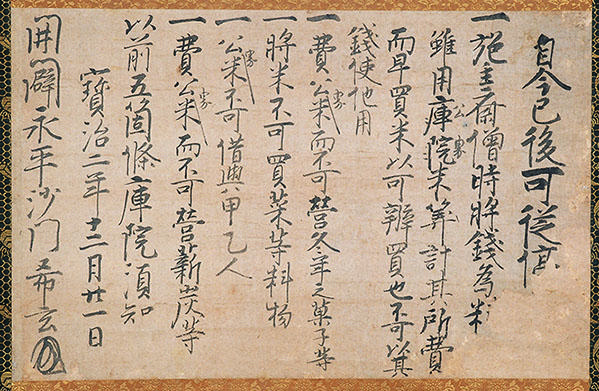 自今已後可從停
一施主齋僧時將錢為料
雖用庫院公界米算計其所費
而早買米以可辨買也不可以其
錢使他用
一費公界米而不可營久年之菓子等
一將米不可買菜等料物
一公界米不可借與甲乙人
一費公界米而不可營薪炭等
以前五箇條庫院須知
寶治二年十二月廿一日
開闢永平沙門希玄